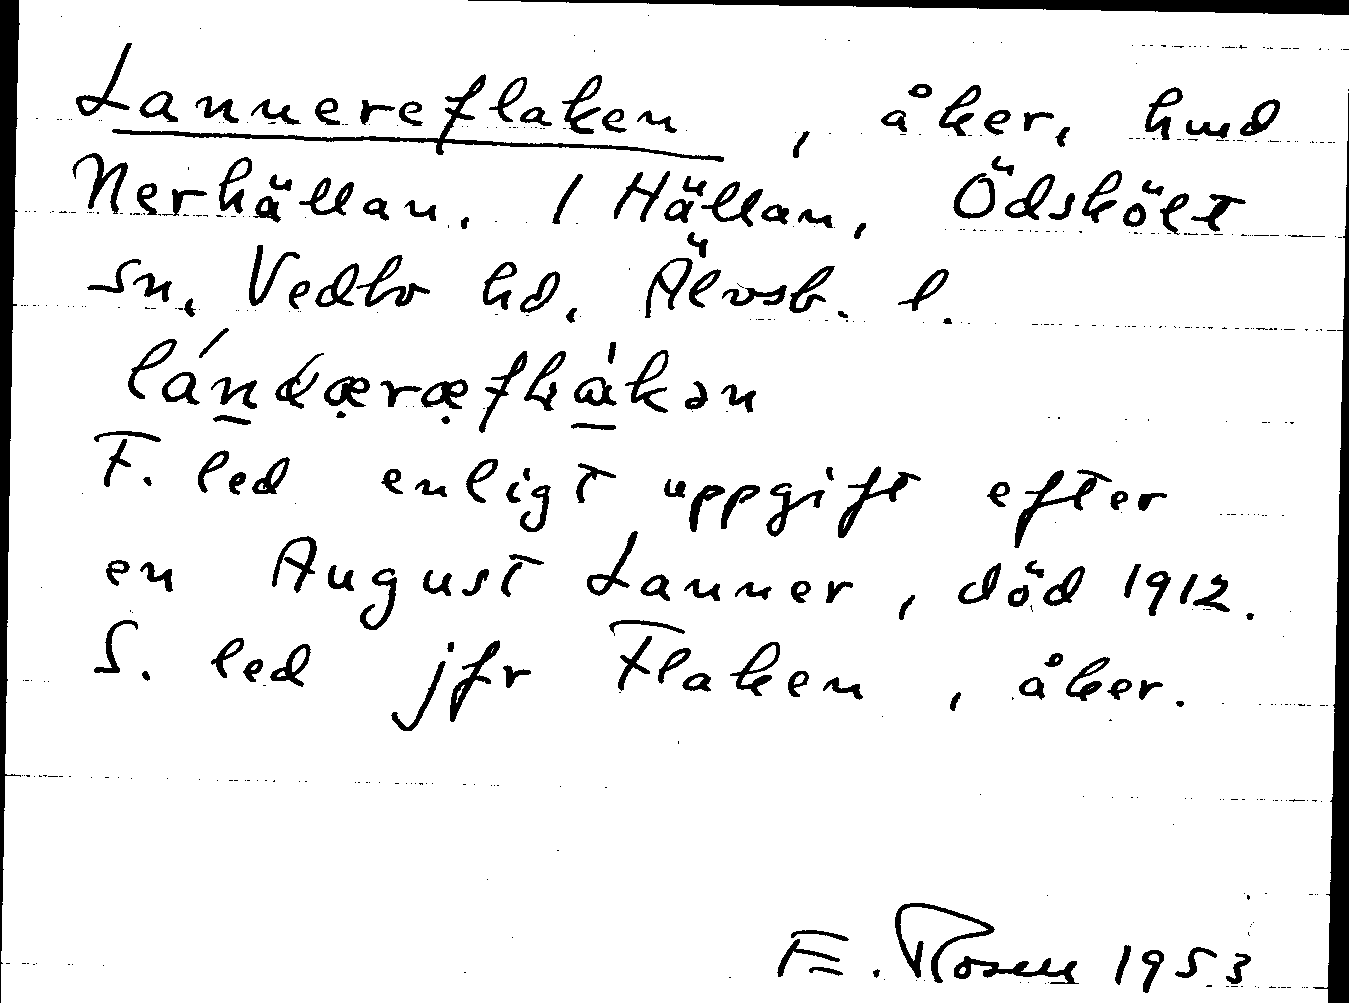 Lannereflaken, åker, hmd
Nerhällan. 1 Hällan, Ödskölt
sn, Vedbo hd, Älvsb. l.
F. led enligt uppgift efter
en August Lanner, död 1912.
S. led jfr Flaken, åker.
E. Rosén 1953